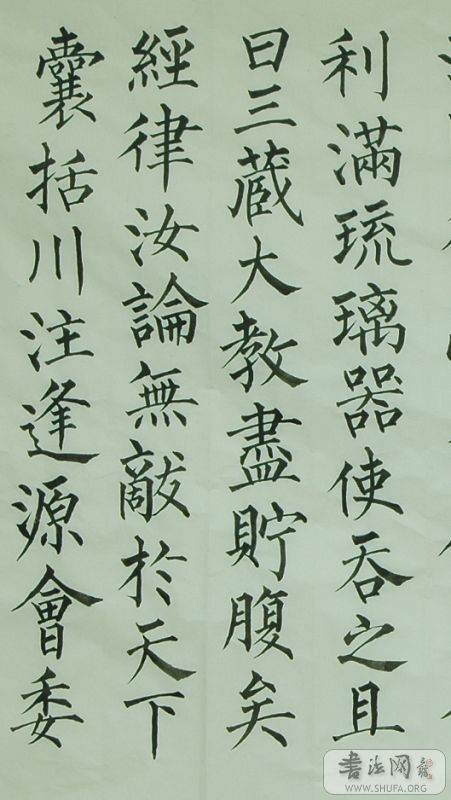 利滿琉璃器使吞之且
曰三藏大教盡貯腹矣
經律汝論無敵於天下
囊括川注逢源會委
書法网
WWW.SHUFA.ORG